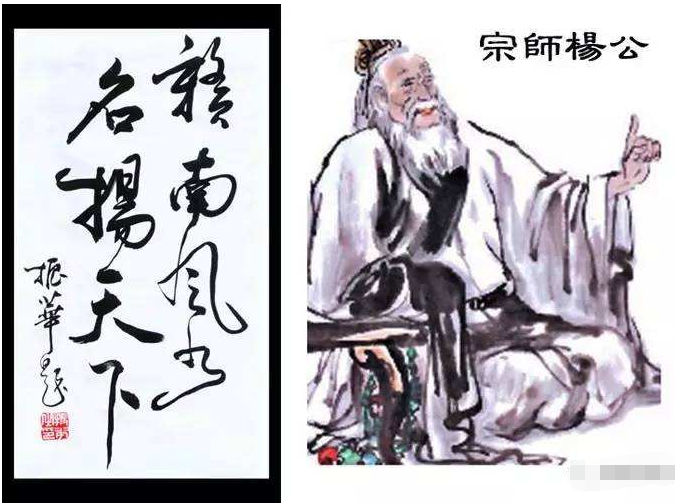 贛南风水
名揚天下
振華题
宗師楊公